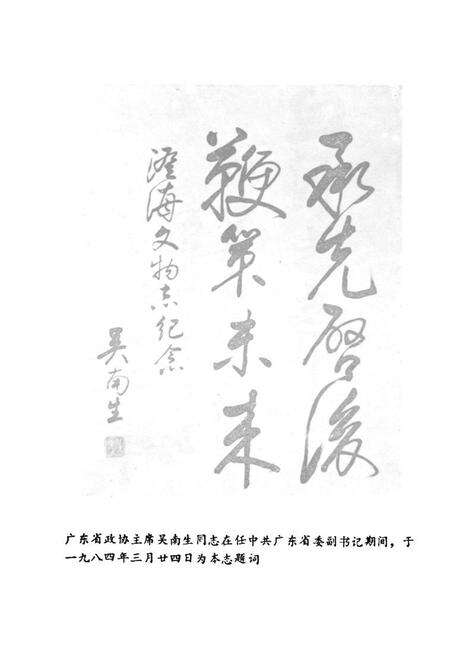 承先启后
鞭策未来
澄海文物志纪念
吴南生
广东省政协主席吴南生同志在任中共广东省委副书记期间，于
一九八四年三月廿四日为本志题词